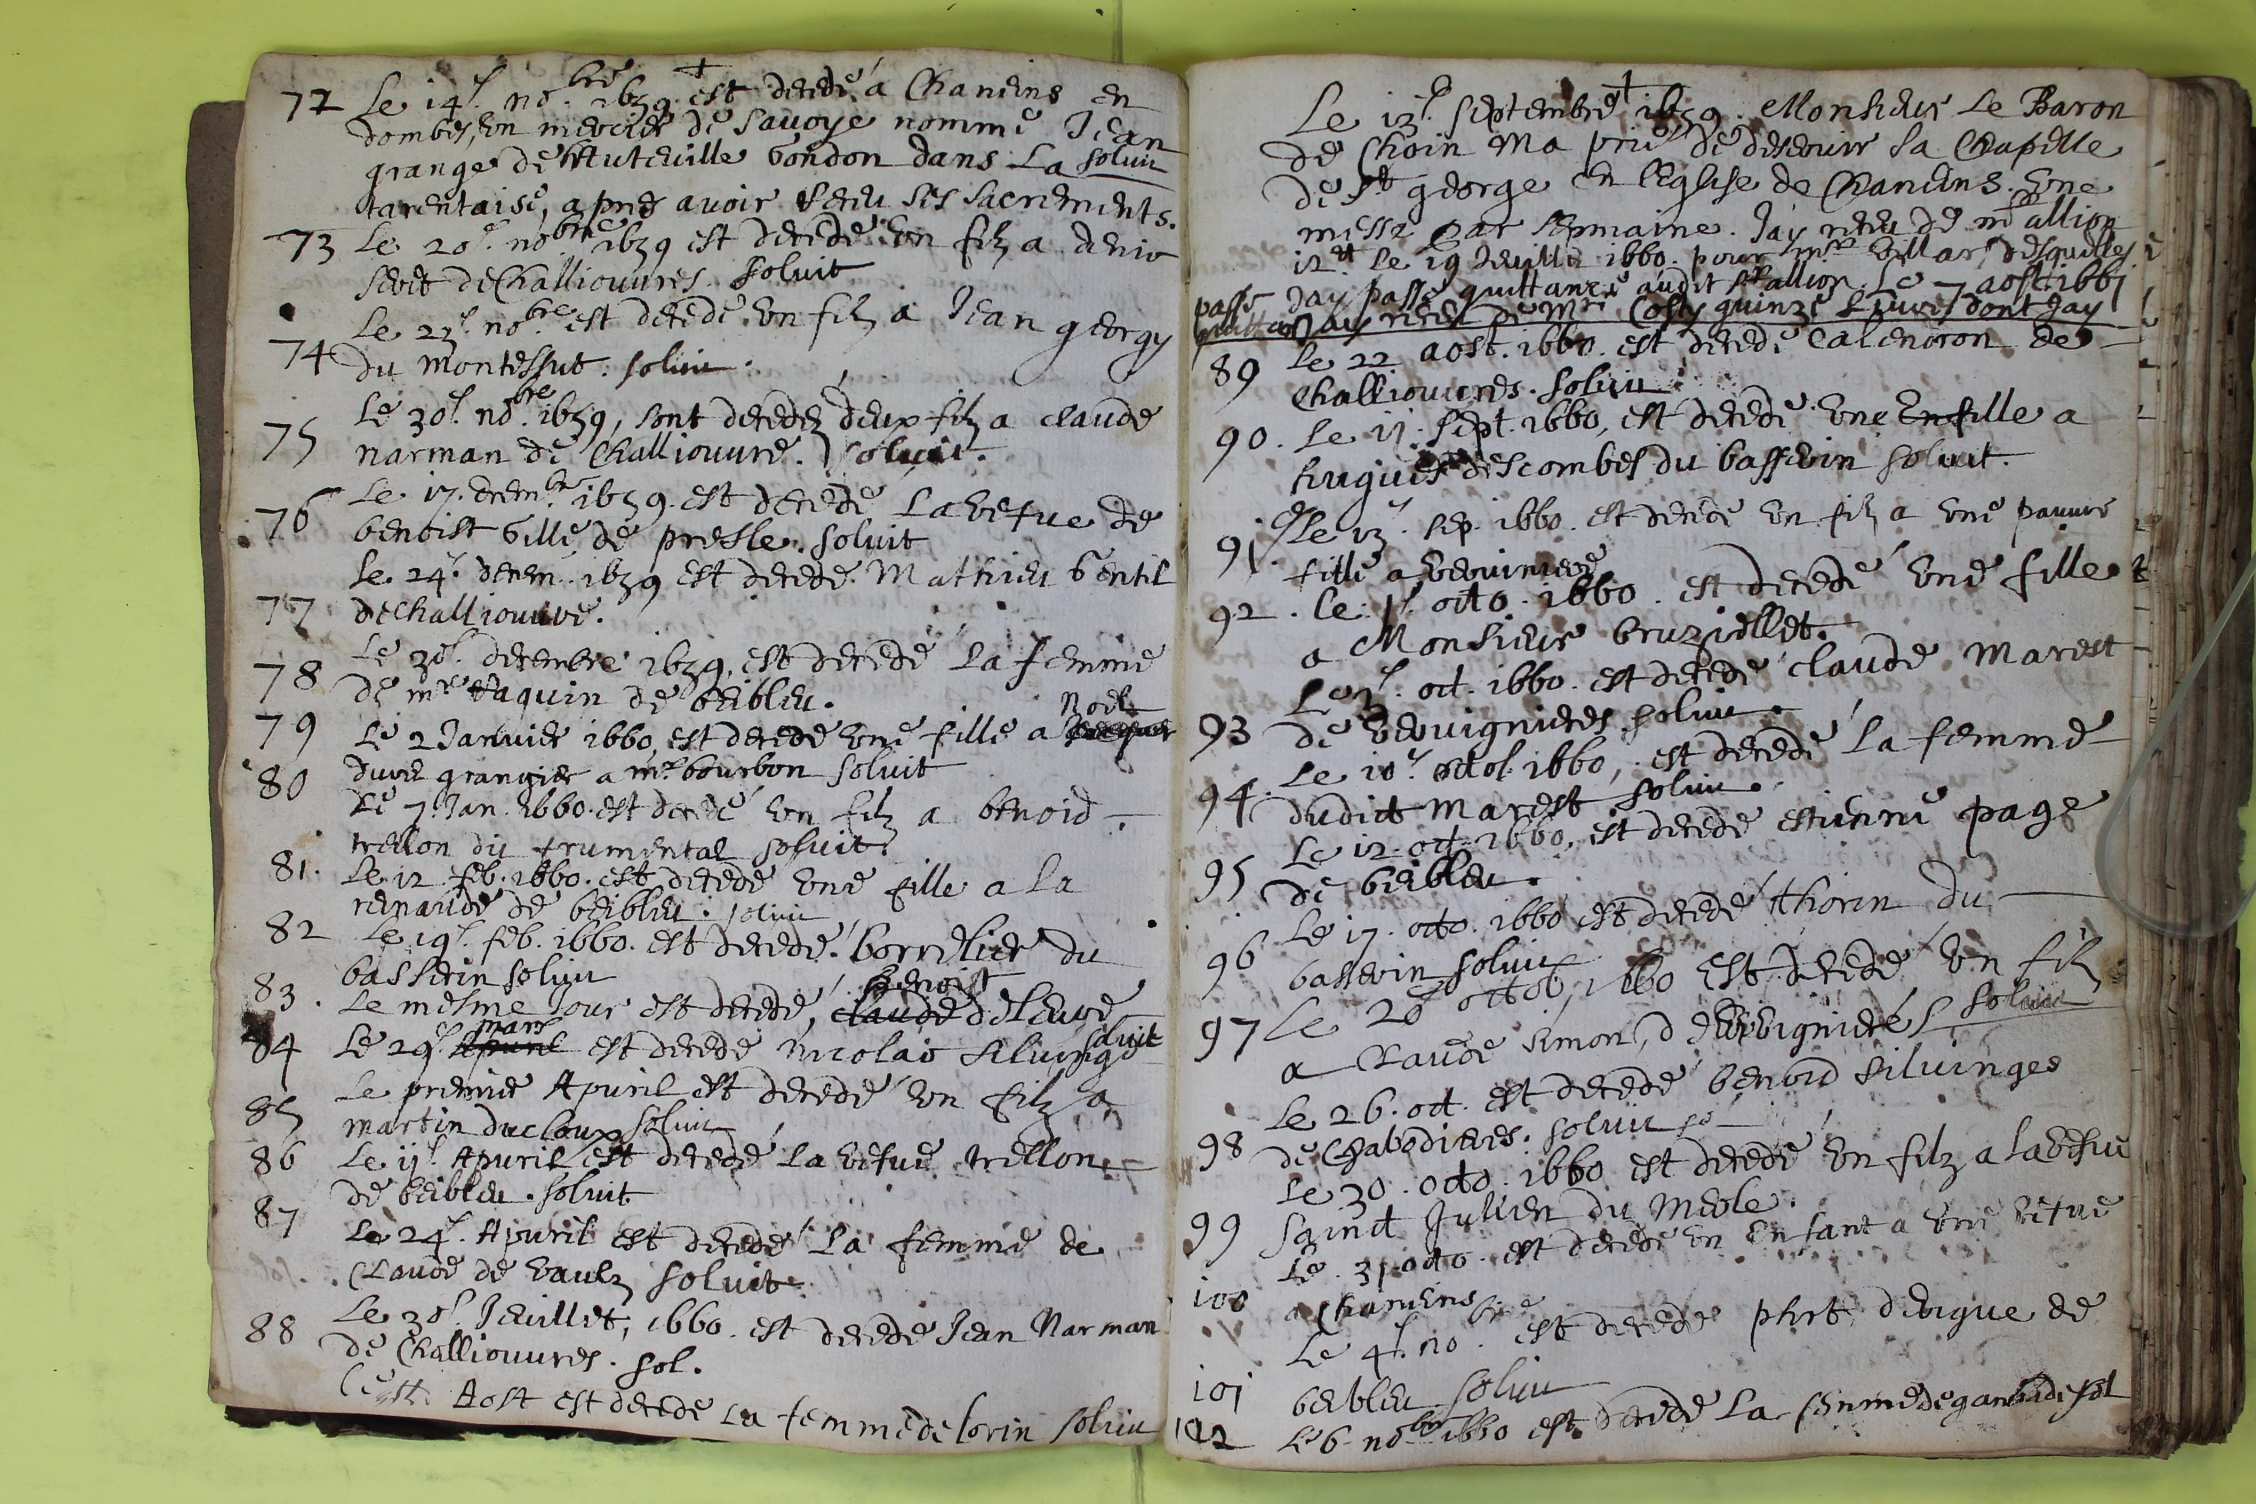 72 Le 14e. nobre. 1659. est decedé a Chaneins en
dombes, un mercier de Savoye nommé Jean
grange de Hauteville Gondon dans La soluit
tarentaise, apres avoir receu ses sacrements.
73 Le 20e. nobre 1659 est decedé un filz a denis
de Challiouvres. soluit
Le 23e. nobre. est decedé un filz a Jean georgy
74 du montessut. soluit.
Le 30e. nobre. 1659, sont decedez deux filz a claude
75 narman de Challiouvre. soluit.
Le 17. decembre 1659. est decedé La vefve de
76 benoist Gille de presle. soluit
Le 24e. decem. 1659 est decedé. Mathieu Gentil
77 de Challiouvre.
Le 30e. decembre 1659, est decedé La femme
78 de mre Jaquin de beibleu.
Noel
79 Le 2 Janvier 1660, est decedé une fille a
duvre grangier a mr. bourbon soluit
80 Le 7. Jan. 1660. est decedé un filz a benoid
trellon du frumental soluit.
81. Le 12. feb. 1660. est decedé une fille a La
renaude de beibleu. soluit
82 Le 19e. feb. 1660. est decedé. borrelier du
basserin soluit
benoist
83. Le mesme Jour est decedé, claude deleuvre
mars soluit
84 Le 29e. Apuril est decedé Nicolas Silvinge
Le premier Apuril est decedé un filz a
85 martin ducloux soluit
86 Le 11e. Apuril est decedé La vefve trellon
de beibleu. soluit
87
Le 24e. Apuril est decedé La femme de
Claude de vaulz soluit.
Le 30e. Jeuillet, 1660. est decedé Jean Narman
88 de Challiouvres. sol.
Aost est decedé La femme de Lorin soluit
Le 13e. septembre 1659. Monsieur Le Baron
de Choin Ma prié de deservir sa Chapelle
de St george en l'Eglise de Chaneins. une
messe par sepmaine. Jay receu de mr allion
12lt Le 19 Jeuillet 1660. pour mr. villars desquelles
Jay passé quittance audit sr allion. Le 7 aost. 1661
Jay receu de Mre Costy quinze Livres dont Jay
passé
quittance
89 Le 22 aost. 1660. est decedé Calendron de
Challiouvres. soluit
90. Le 11. sept. 1660, est decedé une fille a
hugues descombes du basserin soluit.
91. Le 13. sep. 1660. est decedé un filz a une pauvre
fille a
92. Le 1e. octo. 1660. est decedé une fille
a Monsieur bruziellet.
Le 3e. oct. 1660. est decedé claude Marest
93 de soluit.
Le 10e. octo. 1660, est decedé La femme
94. dudict Marest soluit.
Le 12. oct. 1660, est decedé estienne page
95 de beibleu.
Le 17. octo. 1660 est decedé thorin du
96 basserin soluit
Le 20 octob, 1660 est decedé un filz
97 a Claude Simon, soluit
Le 26. oct. est decedé benoid silvinges
98 de Chabodieres. soluit
Le 30. octo. 1660 est decedé un filz a la vefve
99 Sainct Julien du Meole.
Le. 31 octo. est decedé un Enfant a une vefve
100 a Chaneins
Le 4e. nobre. est decedé phrt de
101 beibleu soluit
102 Le 6. nobre 1660 est decedé La femme de sol